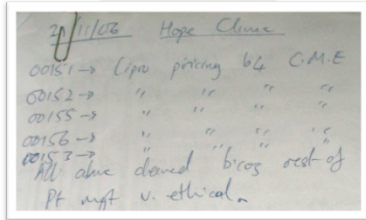 2/11/06 Hope Clinic
00151 → Cipro pricing b4 C.M.E
00152 → " " " "
00155 → " " " "
00156 → " " " "
00153 → " " " "
All above cleared b'cos rest of
Pt mgt v. ethical.